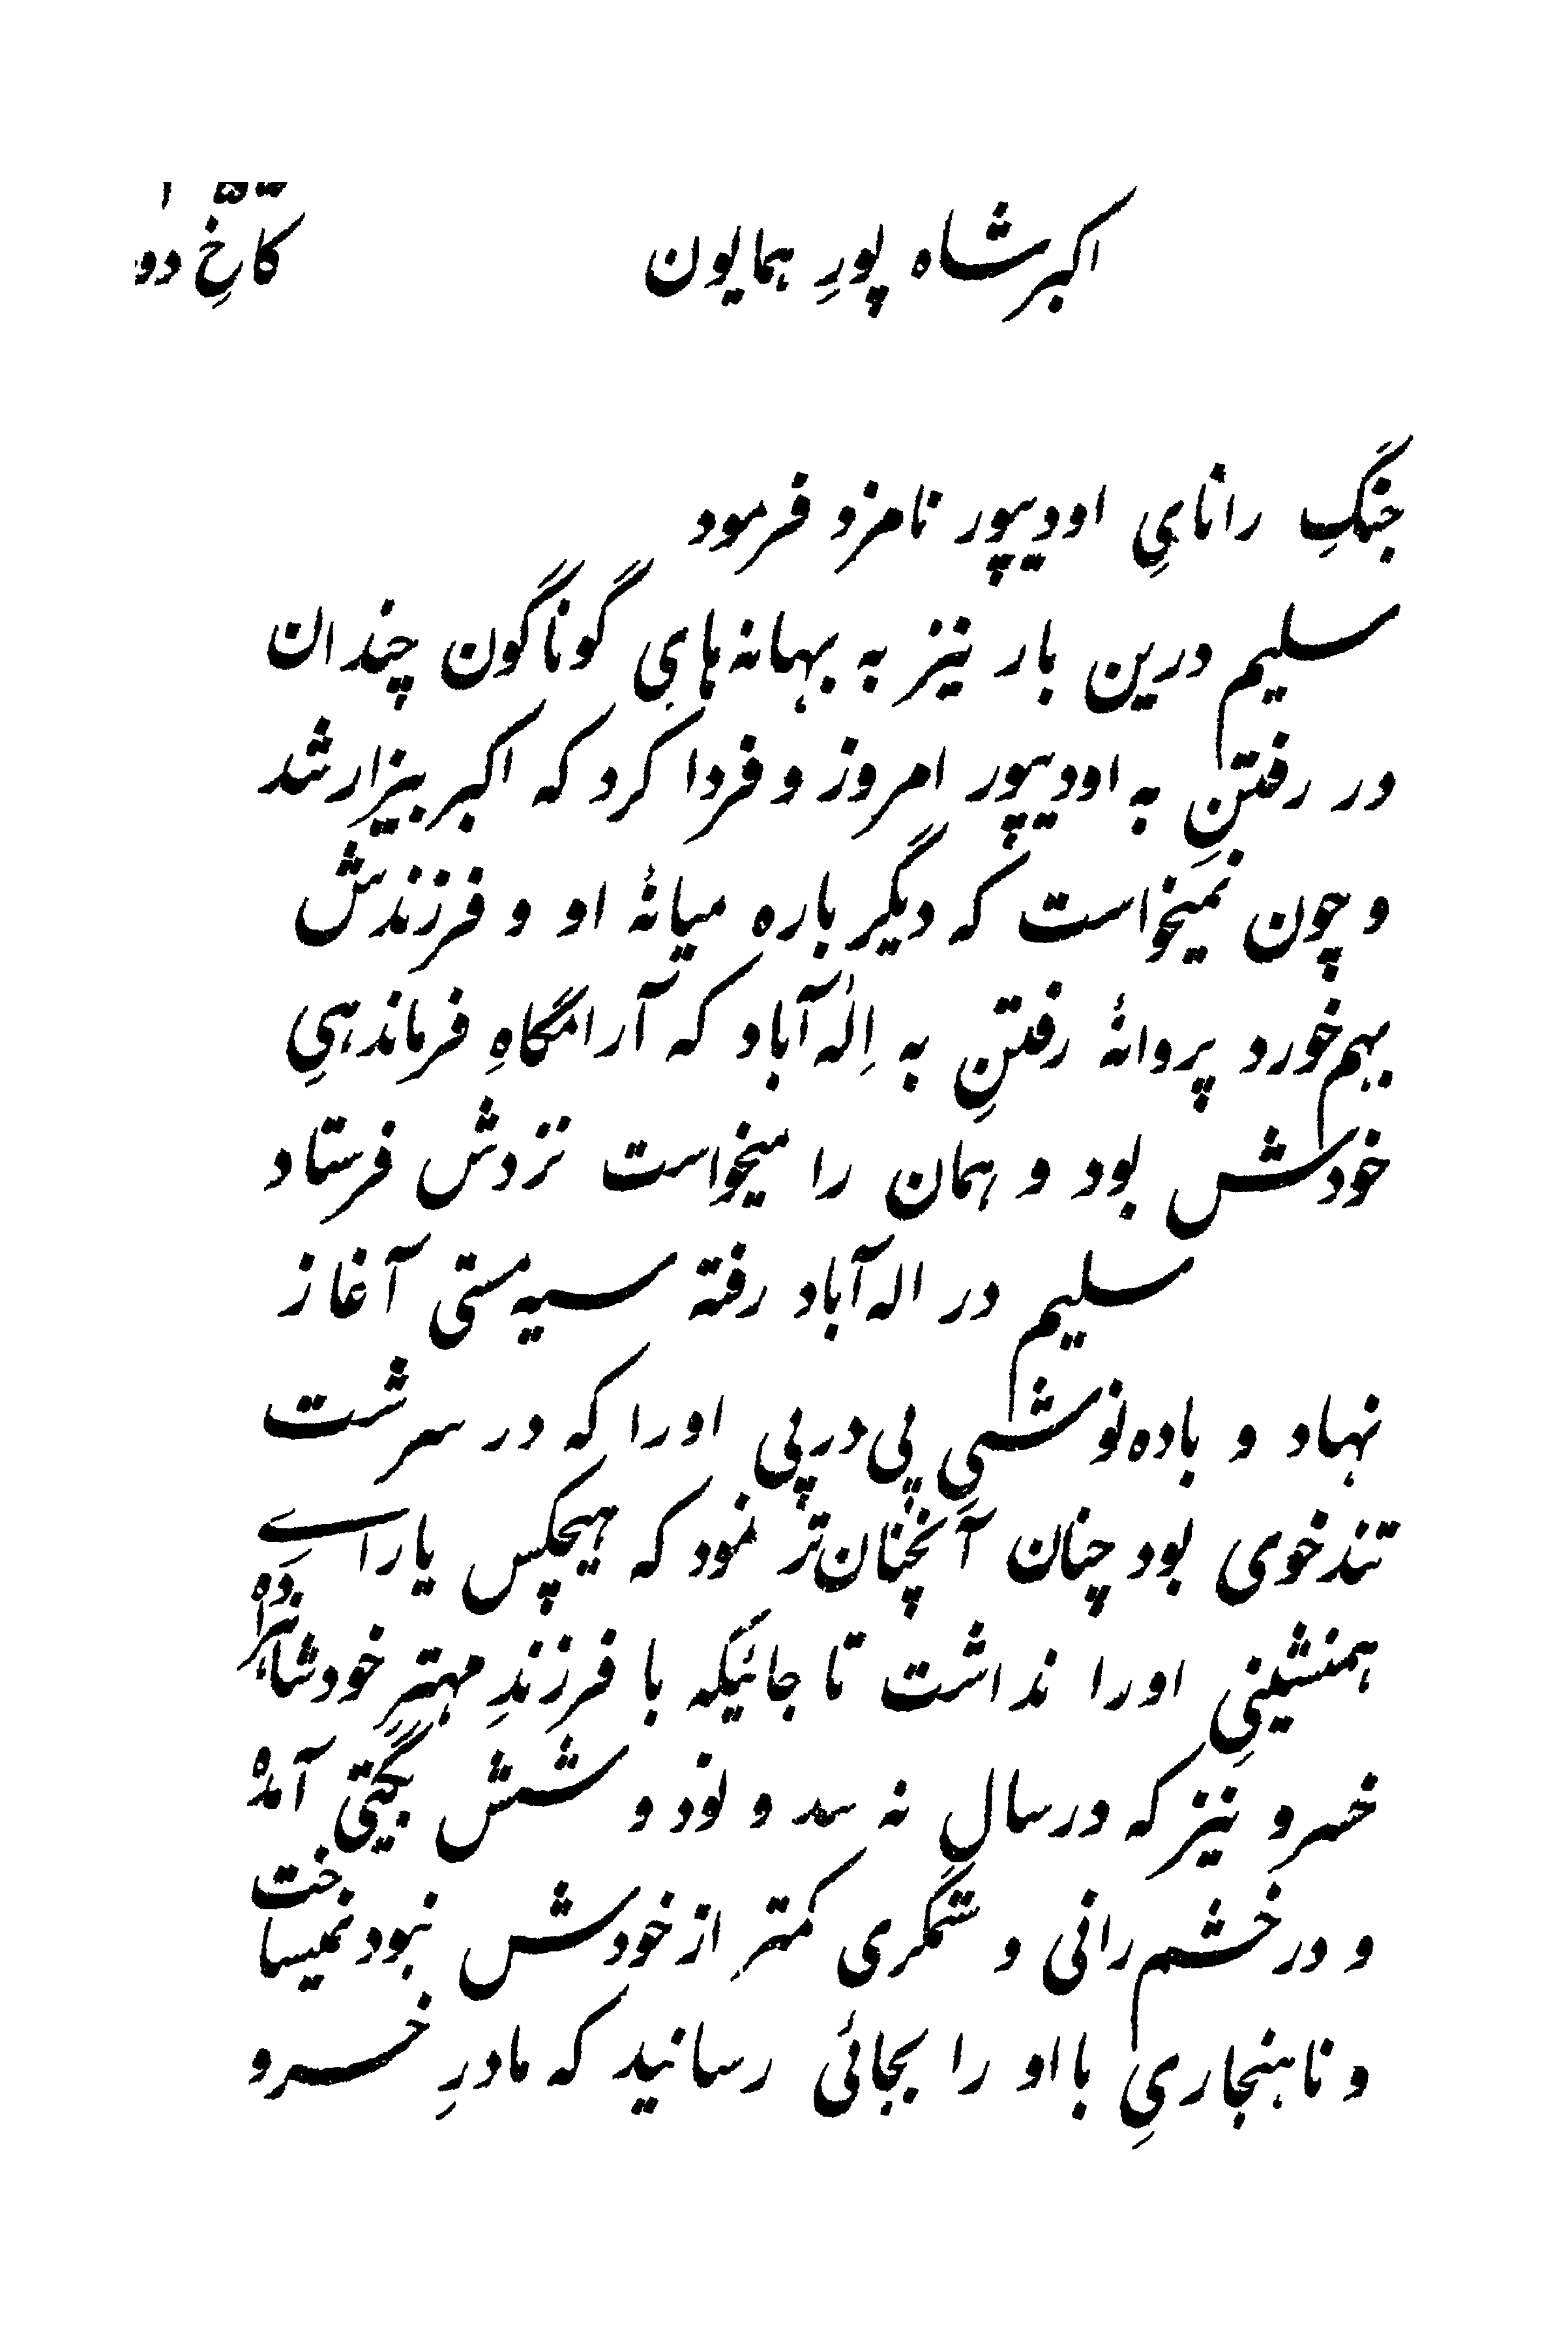 اکبرشاه پورِ همایون
کاخِ دو
جنگِ رانایِ اودیپور نامزد فرمود
سلیم درین بار نیز به بهانه‌های گوناگون چندان
در رفتنِ به اودیپور امروز و فردا کرد که اکبر بیزار شد
و چون نمیخواست که دیگر باره میانهٔ او و فرزندش
بهم خورد پروانهٔ رفتنِ به اِلٰه‌آباد که آرامگاهِ فرماندهیِ
خودش بود و همان را میخواست نزدش فرستاد
سلیم در اله‌آباد رفتهٔ سیه‌مستی آغاز
نهاد و باده‌نوشیِ پی‌درپی اورا که در سرشت
تندخوی بود چنان آنچنان‌تر نمود که هیچکس یارایِ
همنشینیِ اورا نداشت تا جائیکه با فرزندِ مهترِ خود شاهزاده
خسرو نیز که در سالِ نه سد و نود و شش بگیتی آمده
و در خشم‌رانی و ستمگری کمتر از خودش نبود نمیساخت
و ناهنجاریِ با او را بجائی رسانید که مادرِ خسرو